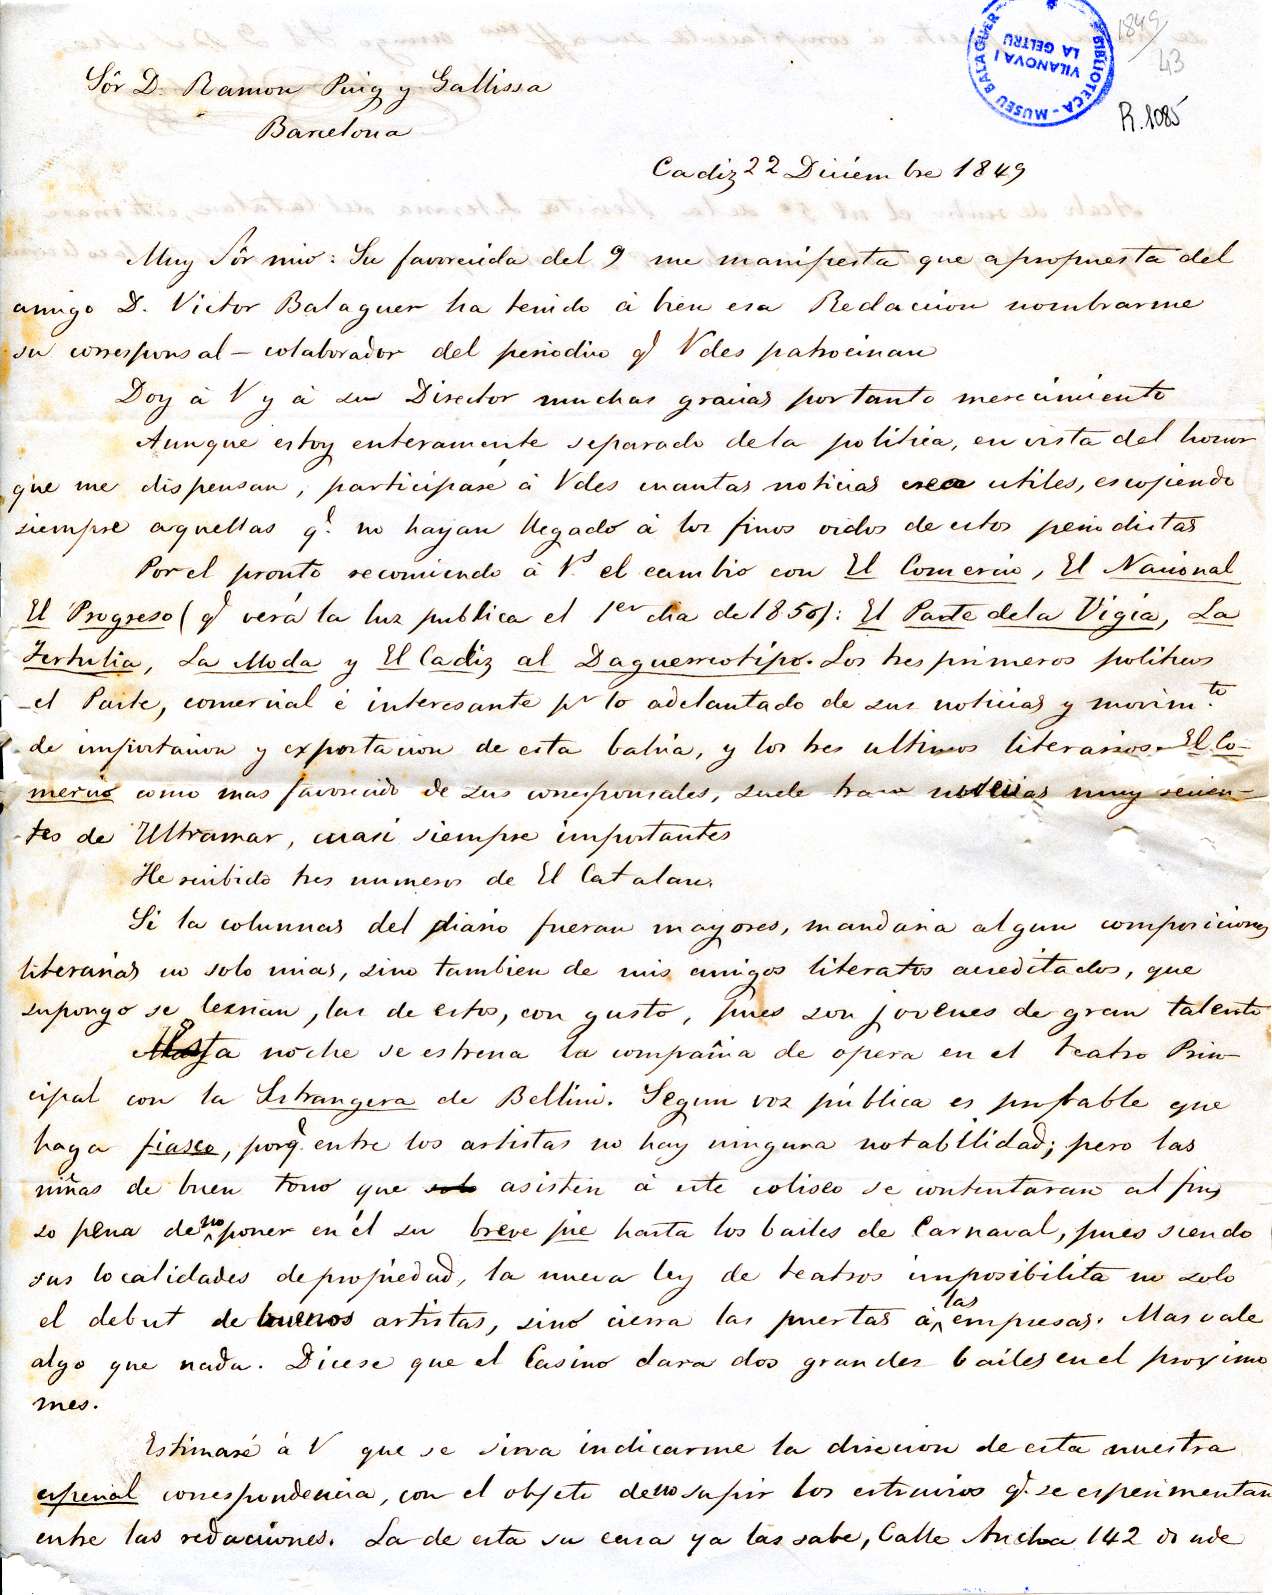 BIBLIOTECA - MUSEU BALAGUER -
VILANOVA I
LA GELTRU
1849
43
R. 1085
Sôr D. Ramon Puig y Gallissa
Barcelona
Cadiz 22 Diciembre 1849
Muy Sôr mio: Su favorecida del 9 me manifiesta que a propuesta del
amigo D. Victor Balaguer ha tenido á bien esa Redaccion nombrarme
su corresponsal-colaborador del periodico q.e Vdes patrocinan
Doy á V y á su Director muchas gracias por tanto merecimiento
Aunque estoy enteramente separado de la politica, en vista del honor
que me dispensan, participaré á Vdes cuantas noticias crea utiles, escojiendo
siempre aquellas q.e no hayan llegado á los finos oidos de estos periodistas
Por el pronto recomiendo á V.s el cambio con El Comercio, El Nacional
El Progreso (q.e verá la luz publica el 1er dia de 1850): El Parte de la Vigia, La
Tertulia, La Moda y El Cadiz al Daguerreotipo. Los tres primeros politicos
el Parte, comercial é interesante pr lo adelantado de sus noticias y movim.to
de importacion y exportacion de esta bahia, y los tres ultimos literarios. El Co-
mercio como mas favorecido de sus corresponsales, suele traer noticias muy recien-
tes de Ultramar, cuasi siempre importantes
He recibido tres numeros de El Catalan.
Si la columnas del diario fueran mayores, mandaria algun composiciones
literarias no solo mias, sino tambien de mis amigos literatos acreditados, que
supongo se leerian, las de estos, con gusto, pues son jovenes de gran talento
Esta noche se estrena la compañia de opera en el teatro Prin-
cipal con la Estrangera de Bellini. Segun voz pública es probable que
haga fiasco, porq.e entre los artistas no hay ninguna notabilidad; pero las
niñas de buen tono que solo asisten á este coliseo se contentaran al fin,
so pena de no poner en él su breve pie hasta los bailes de Carnaval, pues siendo
sus localidades de propiedad, la nueva ley de teatros imposibilita no solo
el debut de buenos artistas, sino cierra las puertas á las empresas. Mas vale
algo que nada. Dicese que el Casino dara dos grandes bailes en el proximo
mes.
Estimaré á V que se sirva indicarme la direccion de esta nuestra
especial correspondencia, con el objeto de no sufrir los estravios q.e se esperimentan
entre las redacciones. La de esta su casa ya las sabe, Calle Ancha 142 donde